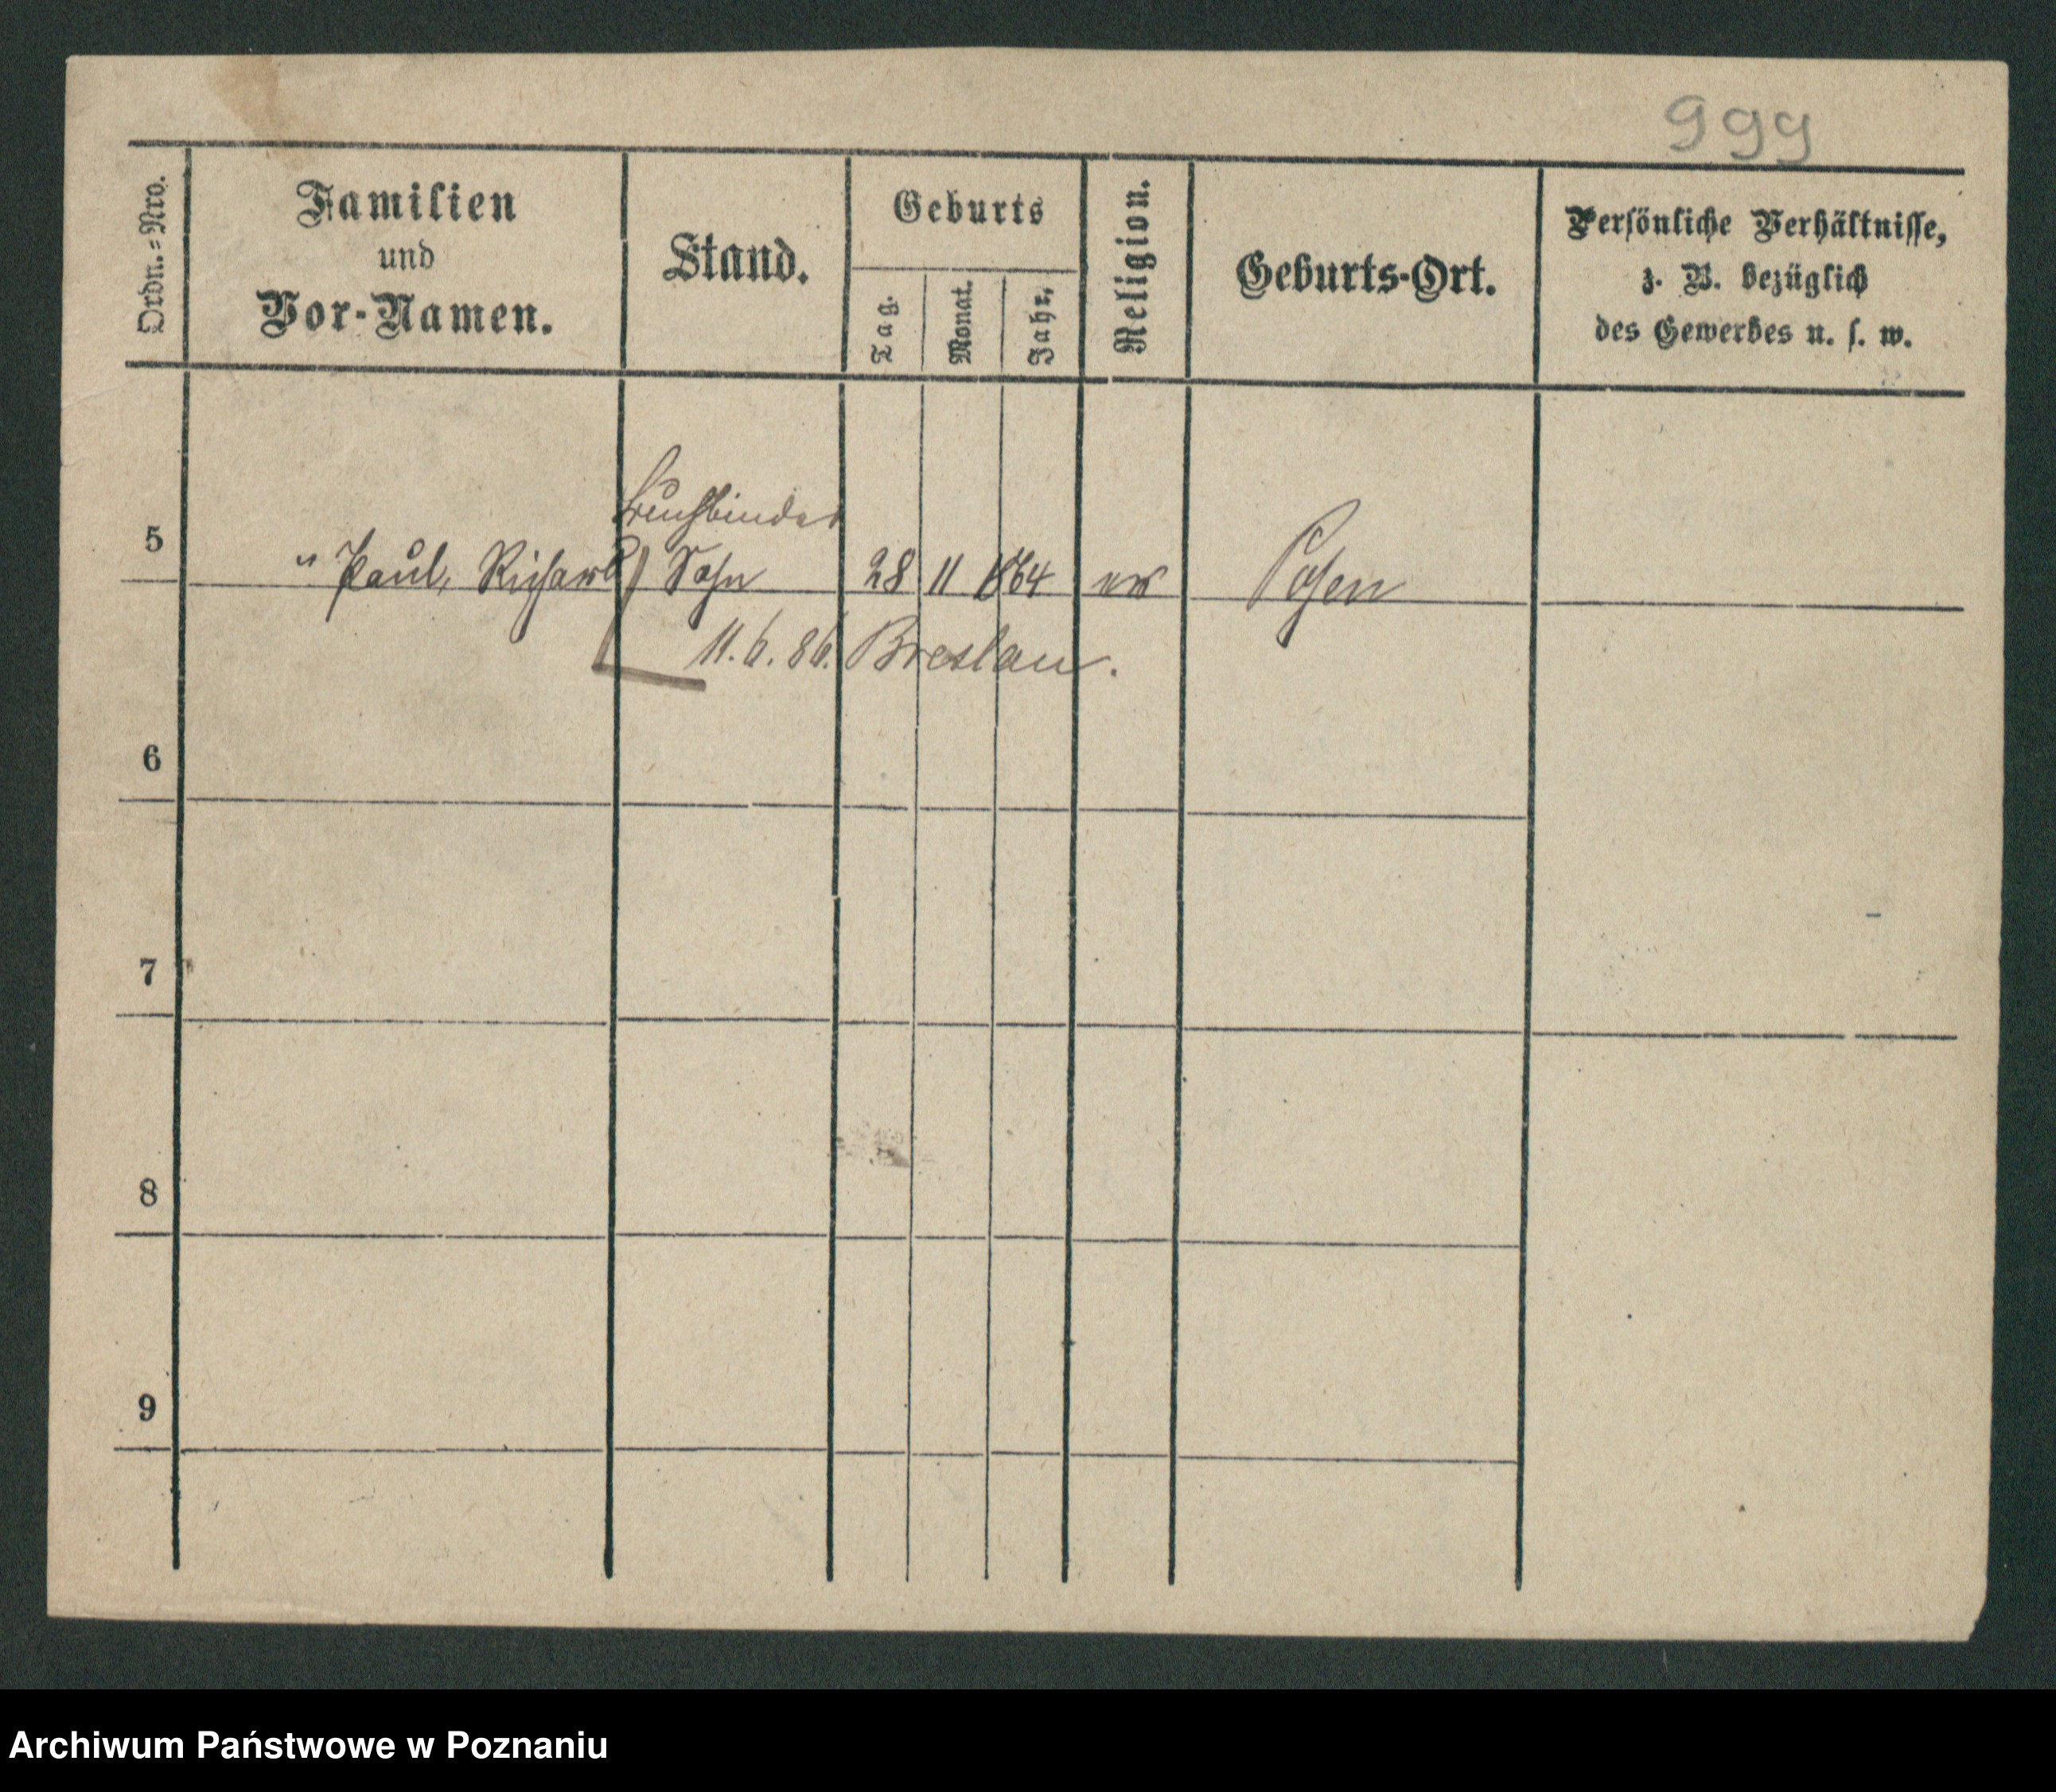 999
Ordn.=Nro.
Familien
und
Vor-Namen.
Stand.
Geburts
Tag.
Monat.
Jahr.
Religion.
Geburts-Ort.
Persönliche Verhältnisse,
z. B. bezüglich
des Gewerbes u. s. w.
Buchbinder
5 " Paul, Richard Sohn 28 11 864 ev Posen
11.6.86. Breslau.
6
7
8
9
Archiwum Państwowe w Poznaniu